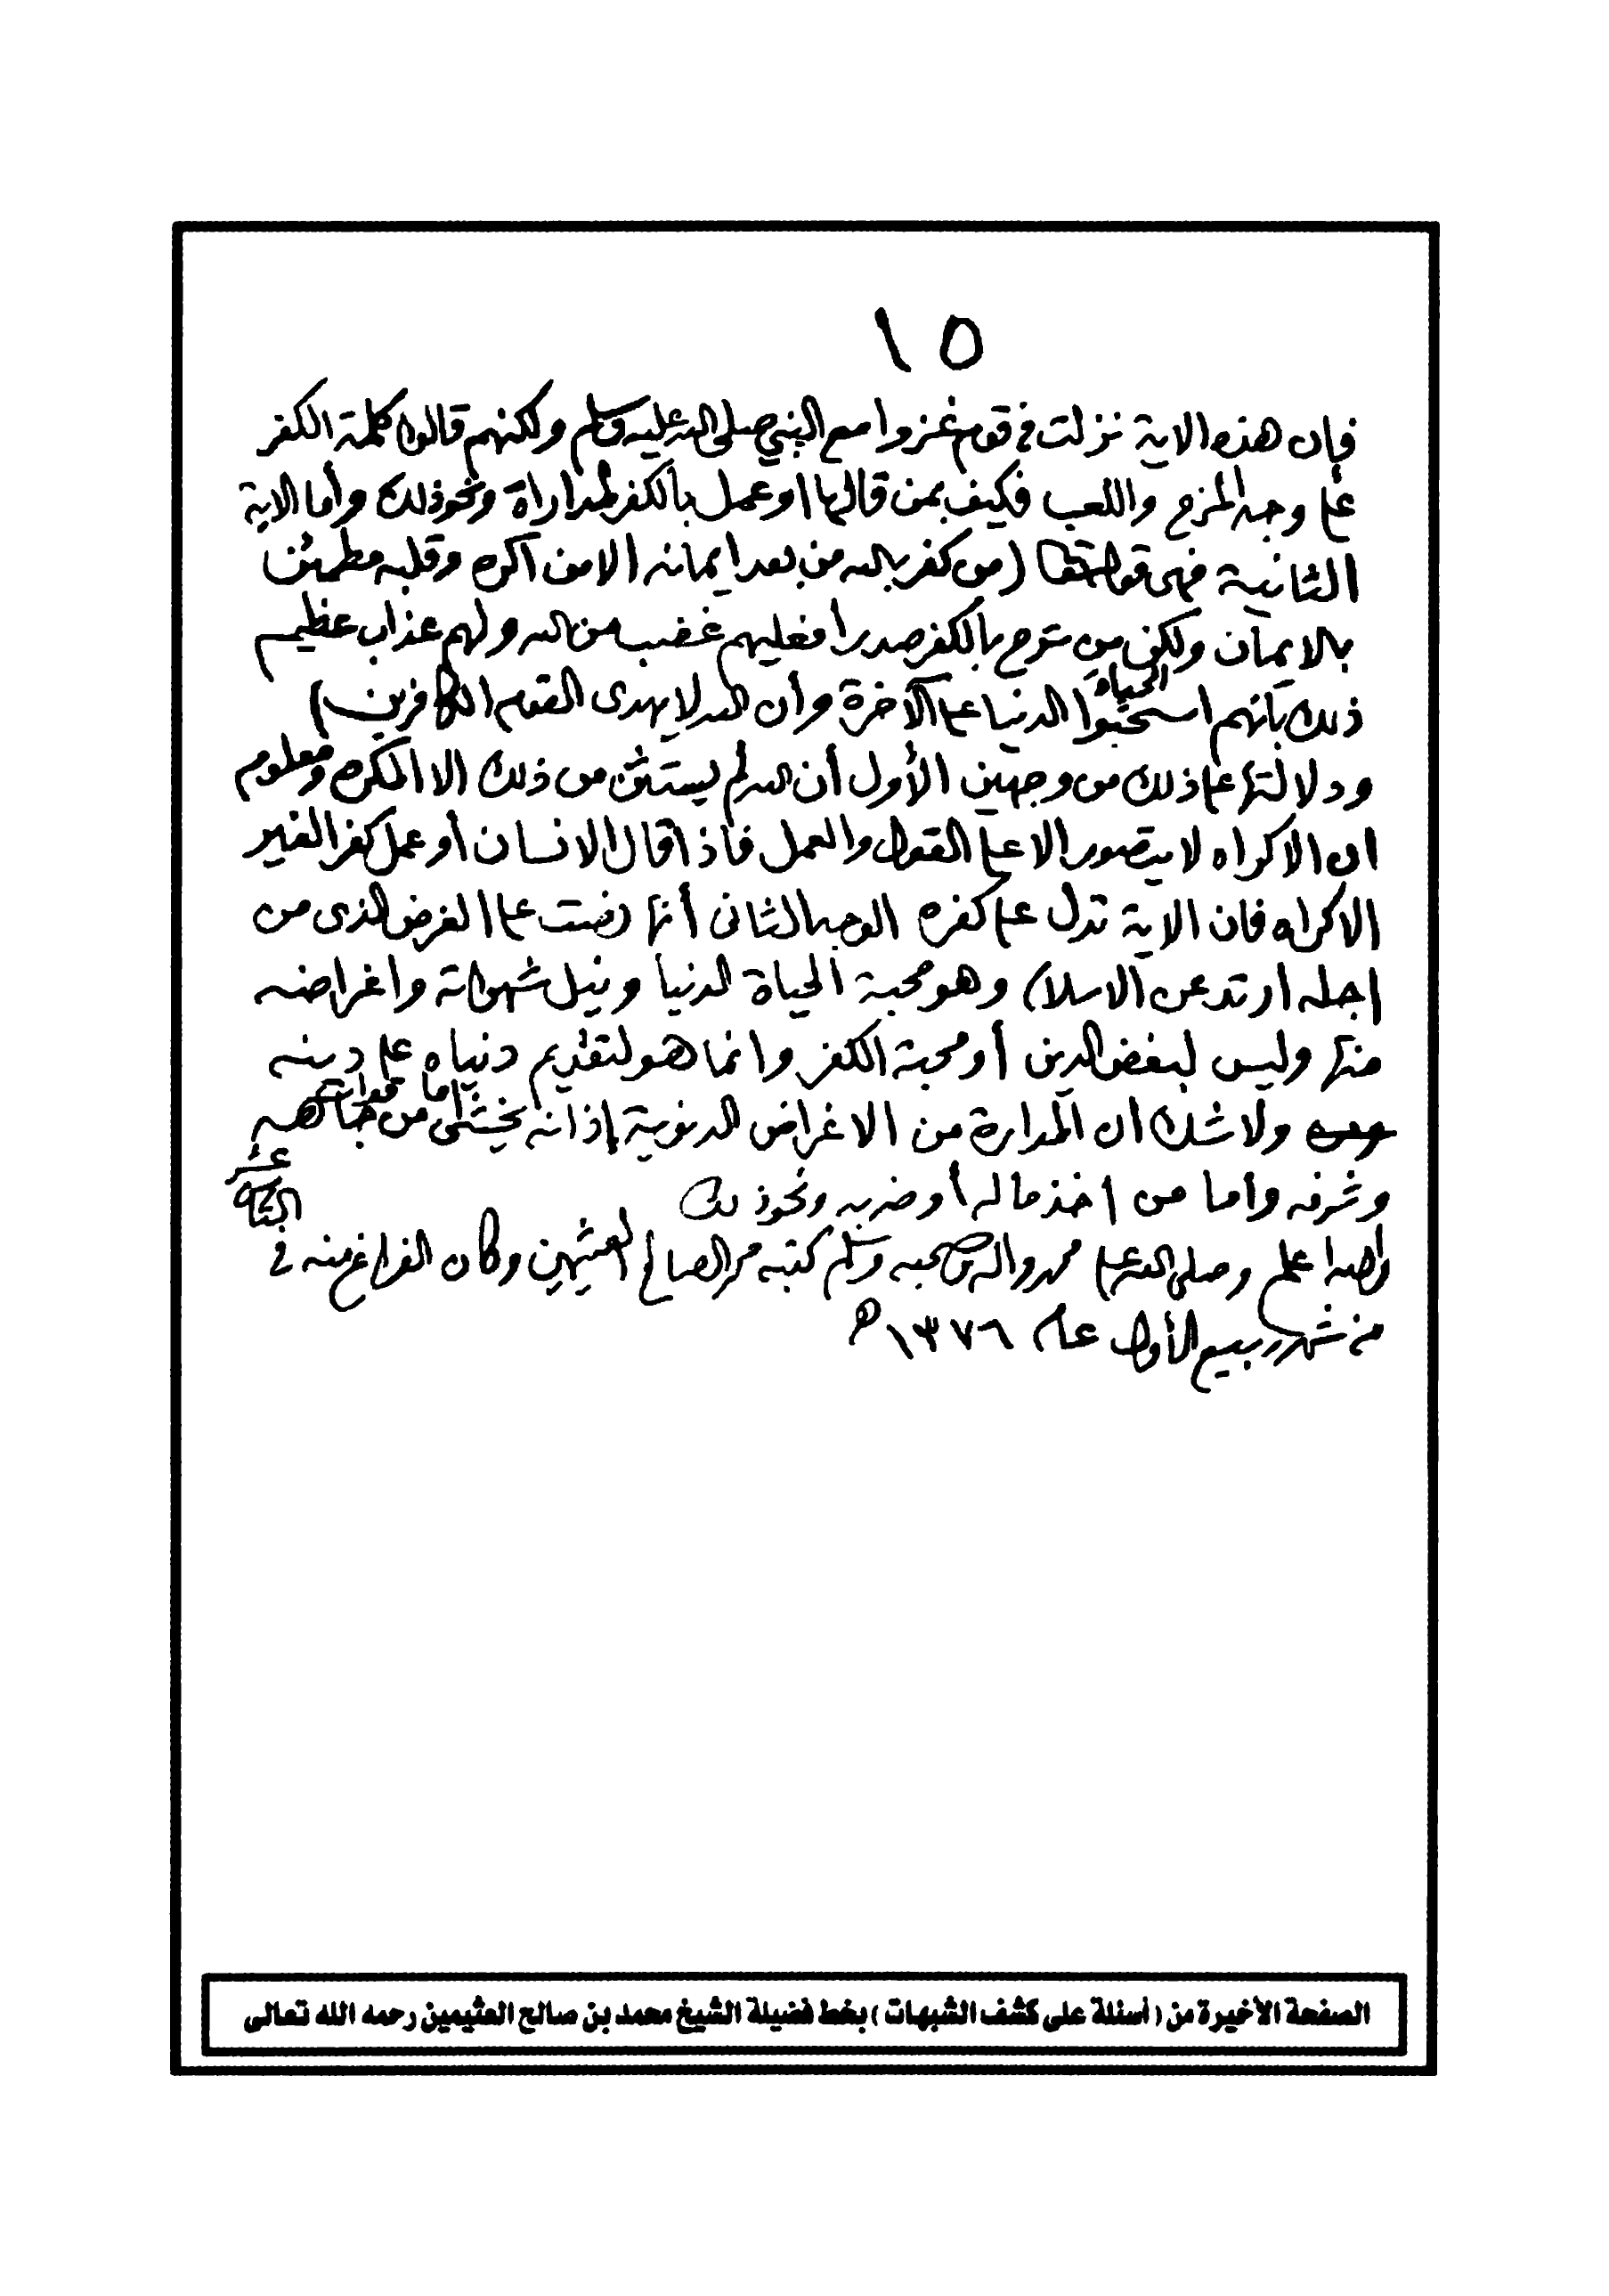 ١٥
فإن هذه الاية نزلت في قوم غزوا مع النبي صلى الله عليه وسلم ولكنهم قالوا كلمة الكفر
على وجه المزح واللعب فكيف بمن قالها او عمل بالكفر لمداراة ونحو ذلك وأما الاية
الثانية فهي قوله تعالى (من كفر بالله من بعد ايمانه الا من اكره وقلبه مطمئن
بالايمان ولكن من شرح بالكفر صدرا فعليهم غضب من الله ولهم عذاب عظيم
ذلك بأنهم استحبوا الحياة الدنيا على الآخرة وأن الله لا يهدى القوم الكافرين)
ودلالتها على ذلك من وجهين الأول أن الله لم يستثن من ذلك الا المكره ومعلوم
ان الاكراه لا يتصور الا على القول والعمل فاذا قال الانسان أو عمل كفرا لغير
الاكراه فان الاية تدل على كفره الوجه الثانى أنها نصت على الغرض الذى من
اجله ارتد عن الاسلام وهو محبة الحياة الدنيا ونيل شهواته واغراضه
منها وليس لبغض الدين أو محبة الكفر وانما هو لتقديم دنياه على دينه
ولا شك ان المدارة من الاغراض الدنوية إذ انه يخشى اما من جاهه
وشرفه واما من اخذ ماله أو ضربه ونحو ذلك
والله اعلم وصلى الله على محمد واله وصحبه وسلم كتبه محمد الصالح العثيمين وكان الفراغ منه في
من شهر ربيع الأول عام ١٣٧٦ هـ
الصفحة الأخيرة من (أسئلة على كشف الشبهات) بخط فضيلة الشيخ محمد بن صالح العثيمين رحمه الله تعالى